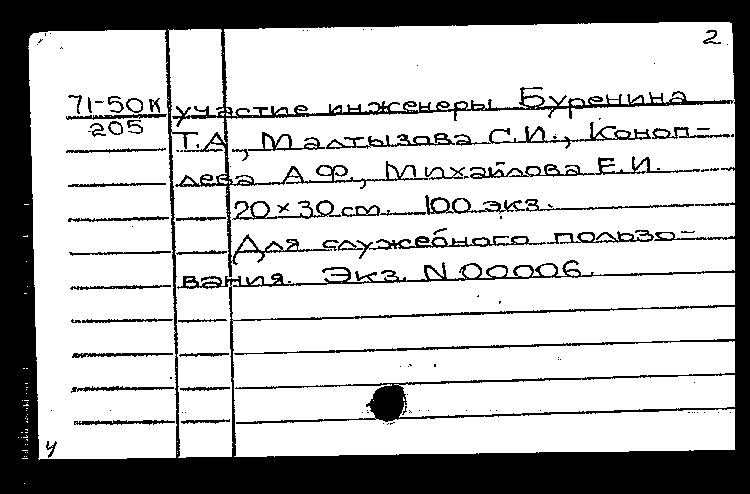 2
71-50К участие инженеры Буренина
205 Т.А., Малтызова С.И., Коноп-
лева А.Ф., Михайлова Е.И.
20×30 cm. 100 экз.
Для служебного пользо-
вания. Экз. N 00006.
ч